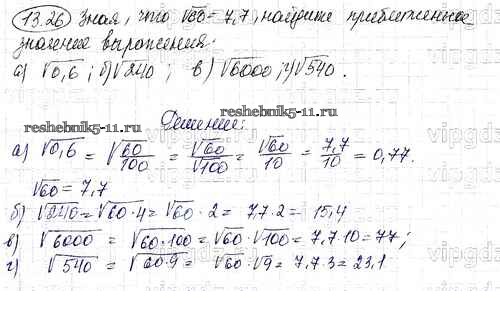 13.26 Зная, что √60 = 7,7, найдите приближенное
значение выражения:
а) √0,6; б) √240; в) √6000; г) √540.
reshebnik5-11.ru
Решение:
reshebnik5-11.ru
а) √0,6 = √(60/100) = √60/√100 = √60/10 = 7,7/10 = 0,77.
√60 = 7,7
б) √240 = √60·4 = √60·2 = 7,7·2 = 15,4
в) √6000 = √60·100 = √60·√100 = 7,7·10 = 77;
г) √540 = √60·9 = √60·√9 = 7,7·3 = 23,1